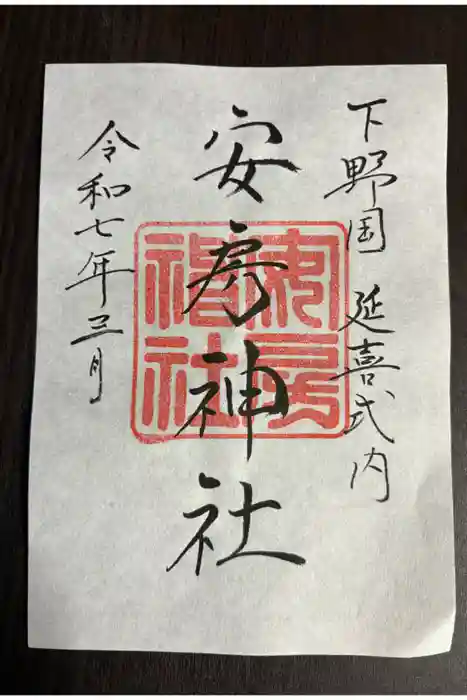 下野国 延喜式内
安房神社
令和七年三月
安房
神社